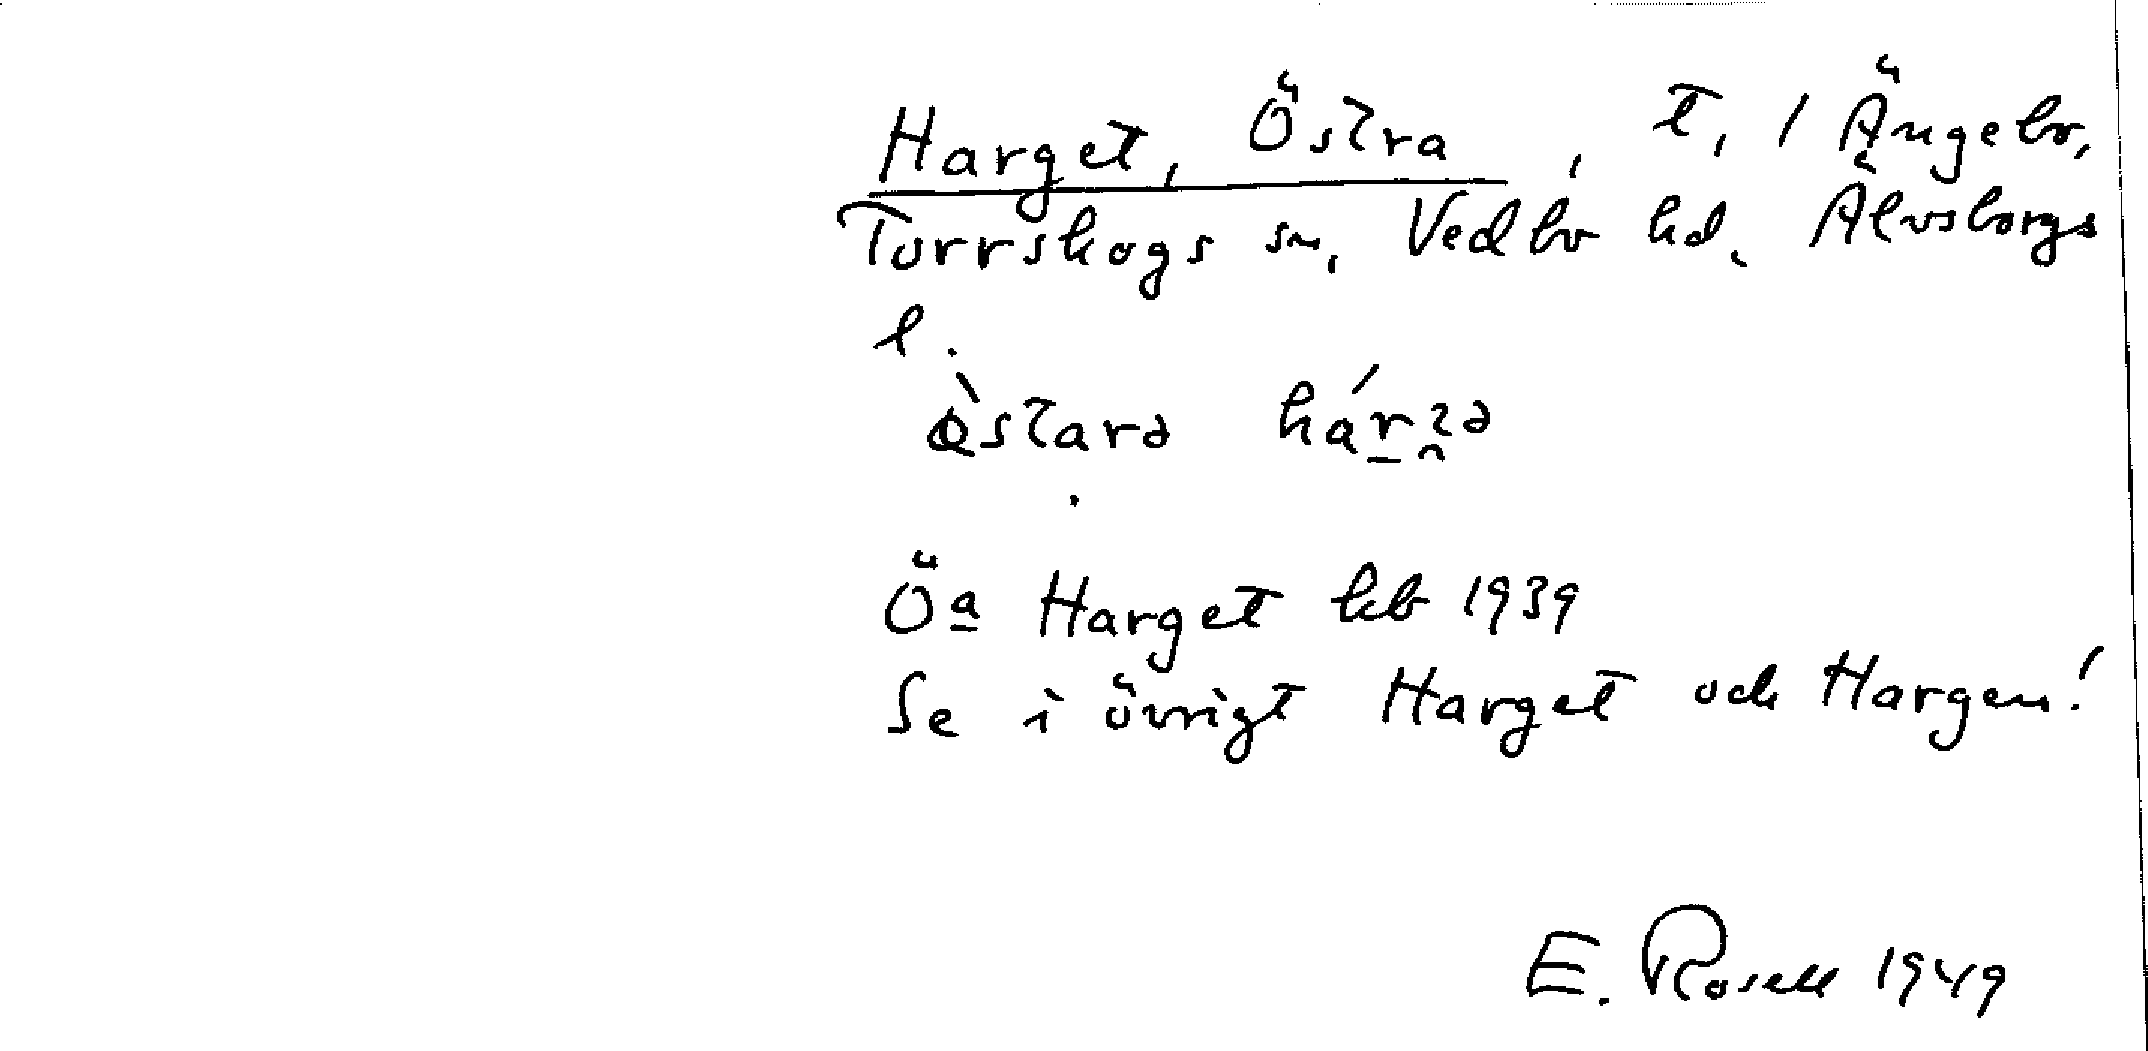 Harget, Östra, t, / Ängebo,
Torrskogs sn, Vedbo hd. Älvsborgs
l.
Öa Harget kb 1939
Se i övrigt Harget och Hargen!
E. Rosell 1949